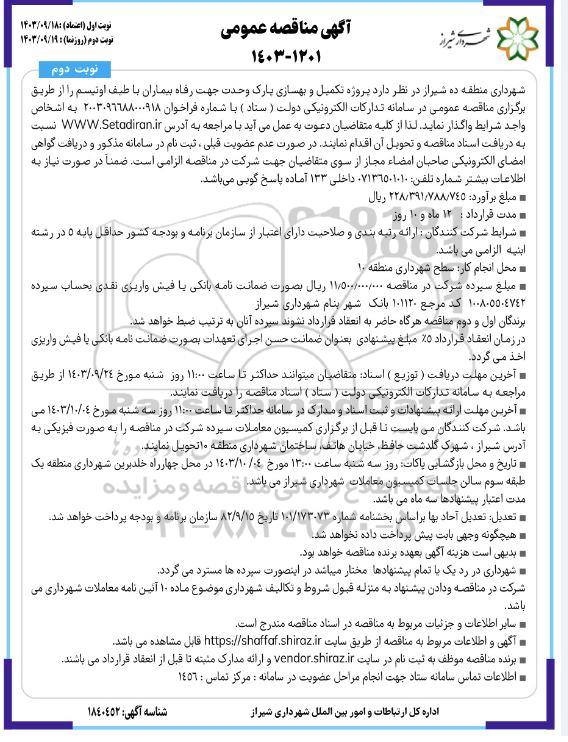 نوبت اول (اعتماد) :۱۴۰۳/۰۹/۱۸
نوبت دوم (روزنما) : ۱۴۰۳/۰۹/۱۹
آگهی مناقصه عمومی
۱۴۰۳-۱۲۰۱
شهرداری شیراز
نوبت دوم
شهرداری منطقه ده شیراز در نظر دارد پروژه تکمیل و بهسازی پارک وحدت جهت رفاه بیماران با طیف اوتیسم را از طریق
برگزاری مناقصه عمومی در سامانه تدارکات الکترونیکی دولت ( ستاد ) با شماره فراخوان ۲۰۰۳۰۹۶۶۸۸۰۰۰۹۱۸ به اشخاص
واجد شرایط واگذار نماید. لذا از کلیه متقاضیان دعوت به عمل می آید با مراجعه به آدرس WWW.Setadiran.ir نسبت
به دریافت اسناد مناقصه و تحویل آن اقدام نمایند. در صورت عدم عضویت قبلی ، ثبت نام در سامانه مذکور و دریافت گواهی
امضای الکترونیکی صاحبان امضاء مجاز از سوی متقاضیان جهت شرکت در مناقصه الزامی است. ضمناً در صورت نیاز به
اطلاعات بیشتر شماره تلفن: ۰۷۱۳۶۵۰۱۰۱۰ داخلی ۱۳۳ آماده پاسخ گویی می‌باشد.
■ مبلغ برآورد: ۲۲۸/۳۹۱/۷۸۸/۷۴۵ ریال
■ مدت قرارداد : ۱۲ ماه و ۱۰ روز
■ شرایط شرکت کنندگان : ارائه رتبه بندی و صلاحیت دارای اعتبار از سازمان برنامه و بودجه کشور حداقل پایه ۵ در رشته
ابنیه الزامی می باشد.
■ محل انجام کار: سطح شهرداری منطقه ۱۰
■ مبلغ سپرده شرکت در مناقصه ۱۱/۵۰۰/۰۰۰/۰۰۰ ریال بصورت ضمانت نامه بانکی یا فیش واریزی نقدی بحساب سپرده
۱۰۰۸۰۵۵۰۴۷۴۲ کد مرجع ۱۰۱۱۲۰ بانک شهر بنام شهرداری شیراز
برندگان اول و دوم مناقصه هرگاه حاضر به انعقاد قرارداد نشوند سپرده آنان به ترتیب ضبط خواهد شد.
در زمان انعقاد قرارداد ۵٪ مبلغ پیشنهادی بعنوان ضمانت حسن اجرای تعهدات بصورت ضمانت نامه بانکی یا فیش واریزی
اخذ می گردد.
■ آخرین مهلت دریافت ( توزیع ) اسناد: متقاضیان میتوانند حداکثر تا ساعت ۱۱:۰۰ روز شنبه مورخ ۱۴۰۳/۰۹/۲۴ از طریق
مراجعه به سامانه تدارکات الکترونیکی دولت ( ستاد ) اسناد مناقصه را دریافت نمایند.
■ آخرین مهلت ارائه پیشنهادات و ثبت اسناد و مدارک در سامانه حداکثر تا ساعت ۱۱:۰۰ روز سه شنبه مورخ ۱۴۰۳/۱۰/۰۴ می
باشد. شرکت کنندگان می بایست تا قبل از برگزاری کمیسیون معاملات سپرده شرکت در مناقصه را به صورت فیزیکی به
آدرس شیراز ، شهرک گلدشت حافظ، خیابان هاتف، ساختمان شهرداری منطقه ۱۰تحویل نمایند.
■ تاریخ و محل بازگشایی پاکات: روز سه شنبه ساعت ۱۳:۰۰ مورخ ۱۴۰۳/۱۰/۰۴ در محل چهارراه خلدبرین شهرداری منطقه یک
طبقه سوم سالن جلسات کمیسیون معاملات شهرداری شیراز می باشد.
مدت اعتبار پیشنهادها سه ماه می باشد.
■ تعدیل: تعدیل آحاد بها براساس بخشنامه شماره ۱۰۱/۱۷۳۰۷۳ تاریخ ۸۲/۹/۱۵ سازمان برنامه و بودجه پرداخت خواهد شد.
■ هیچگونه وجهی بابت پیش پرداخت داده نخواهد شد.
■ بدیهی است هزینه آگهی بعهده برنده مناقصه خواهد بود.
■ شهرداری در رد یک یا تمام پیشنهادها مختار میباشد در اینصورت سپرده ها مسترد می گردد.
شرکت در مناقصه ودادن پیشنهاد به منزله قبول شروط و تکالیف شهرداری موضوع ماده ۱۰ آئین نامه معاملات شهرداری می
باشد.
■ سایر اطلاعات و جزئیات مربوط به مناقصه در اسناد مناقصه مندرج است.
■ آگهی و اطلاعات مربوط به مناقصه از طریق سایت https://shaffaf.shiraz.ir قابل مشاهده می باشد.
■ برنده مناقصه موظف به ثبت نام در سایت vendor.shiraz.ir و ارائه مدارک مثبته تا قبل از انعقاد قرارداد می باشند.
■ اطلاعات تماس سامانه ستاد جهت انجام مراحل عضویت در سامانه : مرکز تماس : ۱۴۵۶
اداره کل ارتباطات و امور بین الملل شهرداری شیراز
شناسه آگهی: ۱۸۴۰۴۵۲